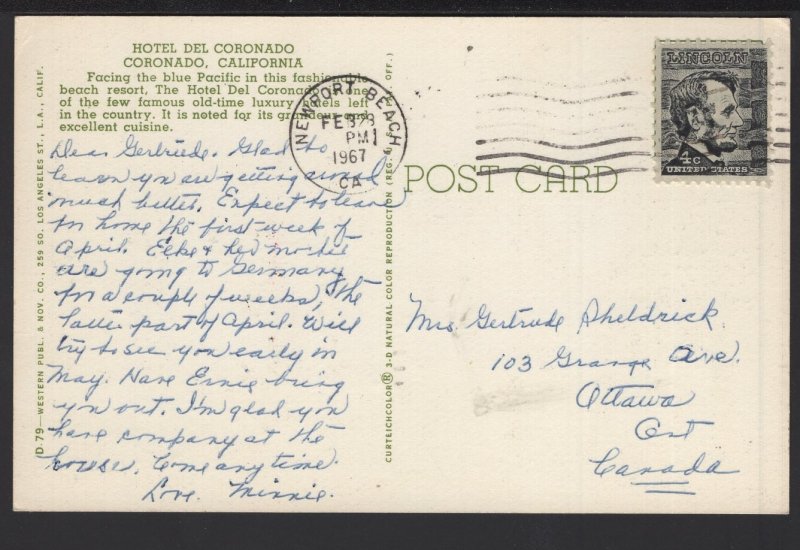 HOTEL DEL CORONADO
CORONADO, CALIFORNIA
Facing the blue Pacific in this fashionable
beach resort, The Hotel Del Coronado is one
of the few famous old-time luxury hotels left
in the country. It is noted for its grandeur and
excellent cuisine.
Dear Gertrude. Glad to
learn you are getting around
much better. Expect to leave
for home the first week of
April. Elke & her mother
are going to Germany
for a couple of weeks, the
latter part of April. Will
try to see you early in
May. Have Ernie bring
you out. I'm glad you
have company at the
house. Come any time.
Love. Minnie.
D-79—WESTERN PUBL. & NOV. CO., 259 SO. LOS ANGELES ST., L.A., CALIF.
CURTEICHCOLOR® 3-D NATURAL COLOR REPRODUCTION (REG. U.S.A. OFF.)
NEWPORT BEACH
FEB 28
PM
1967
CA
POST CARD
LINCOLN
4c
UNITED STATES
Mrs Gertrude Sheldrick
103 Grange Ave.
Ottawa
Ont
Canada